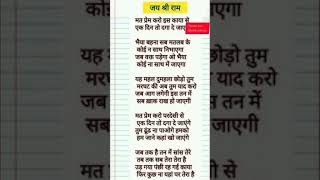 जय श्री राम
मत प्रेम करो इस काया से
एक दिन तो दगा दे जाएगा
भैया बहना सब मतलब के
कोई न साथ निभाएगा
जब वक्त पड़ेगा ओ भैया
कोई ना साथ में जाएगा
यह महल दुमहला छोड़ो तुम
मरघट की अब तुम याद करो
जब आग लगेगी इस तन में
सब ख़ाक राख हो जाएगी
मत प्रेम करो परदेसी से
एक दिन तो दगा दे जाएंगे
तुम ढूंढ ना पाओगे हमको
हम जाने कहां खो जाएंगे
जब तक है तन में सांस तेरे
तब तक सब तेरा तेरा है
उड़ गया पंछी रह गई काया
फिर कुछ ना यहां पर तेरा है